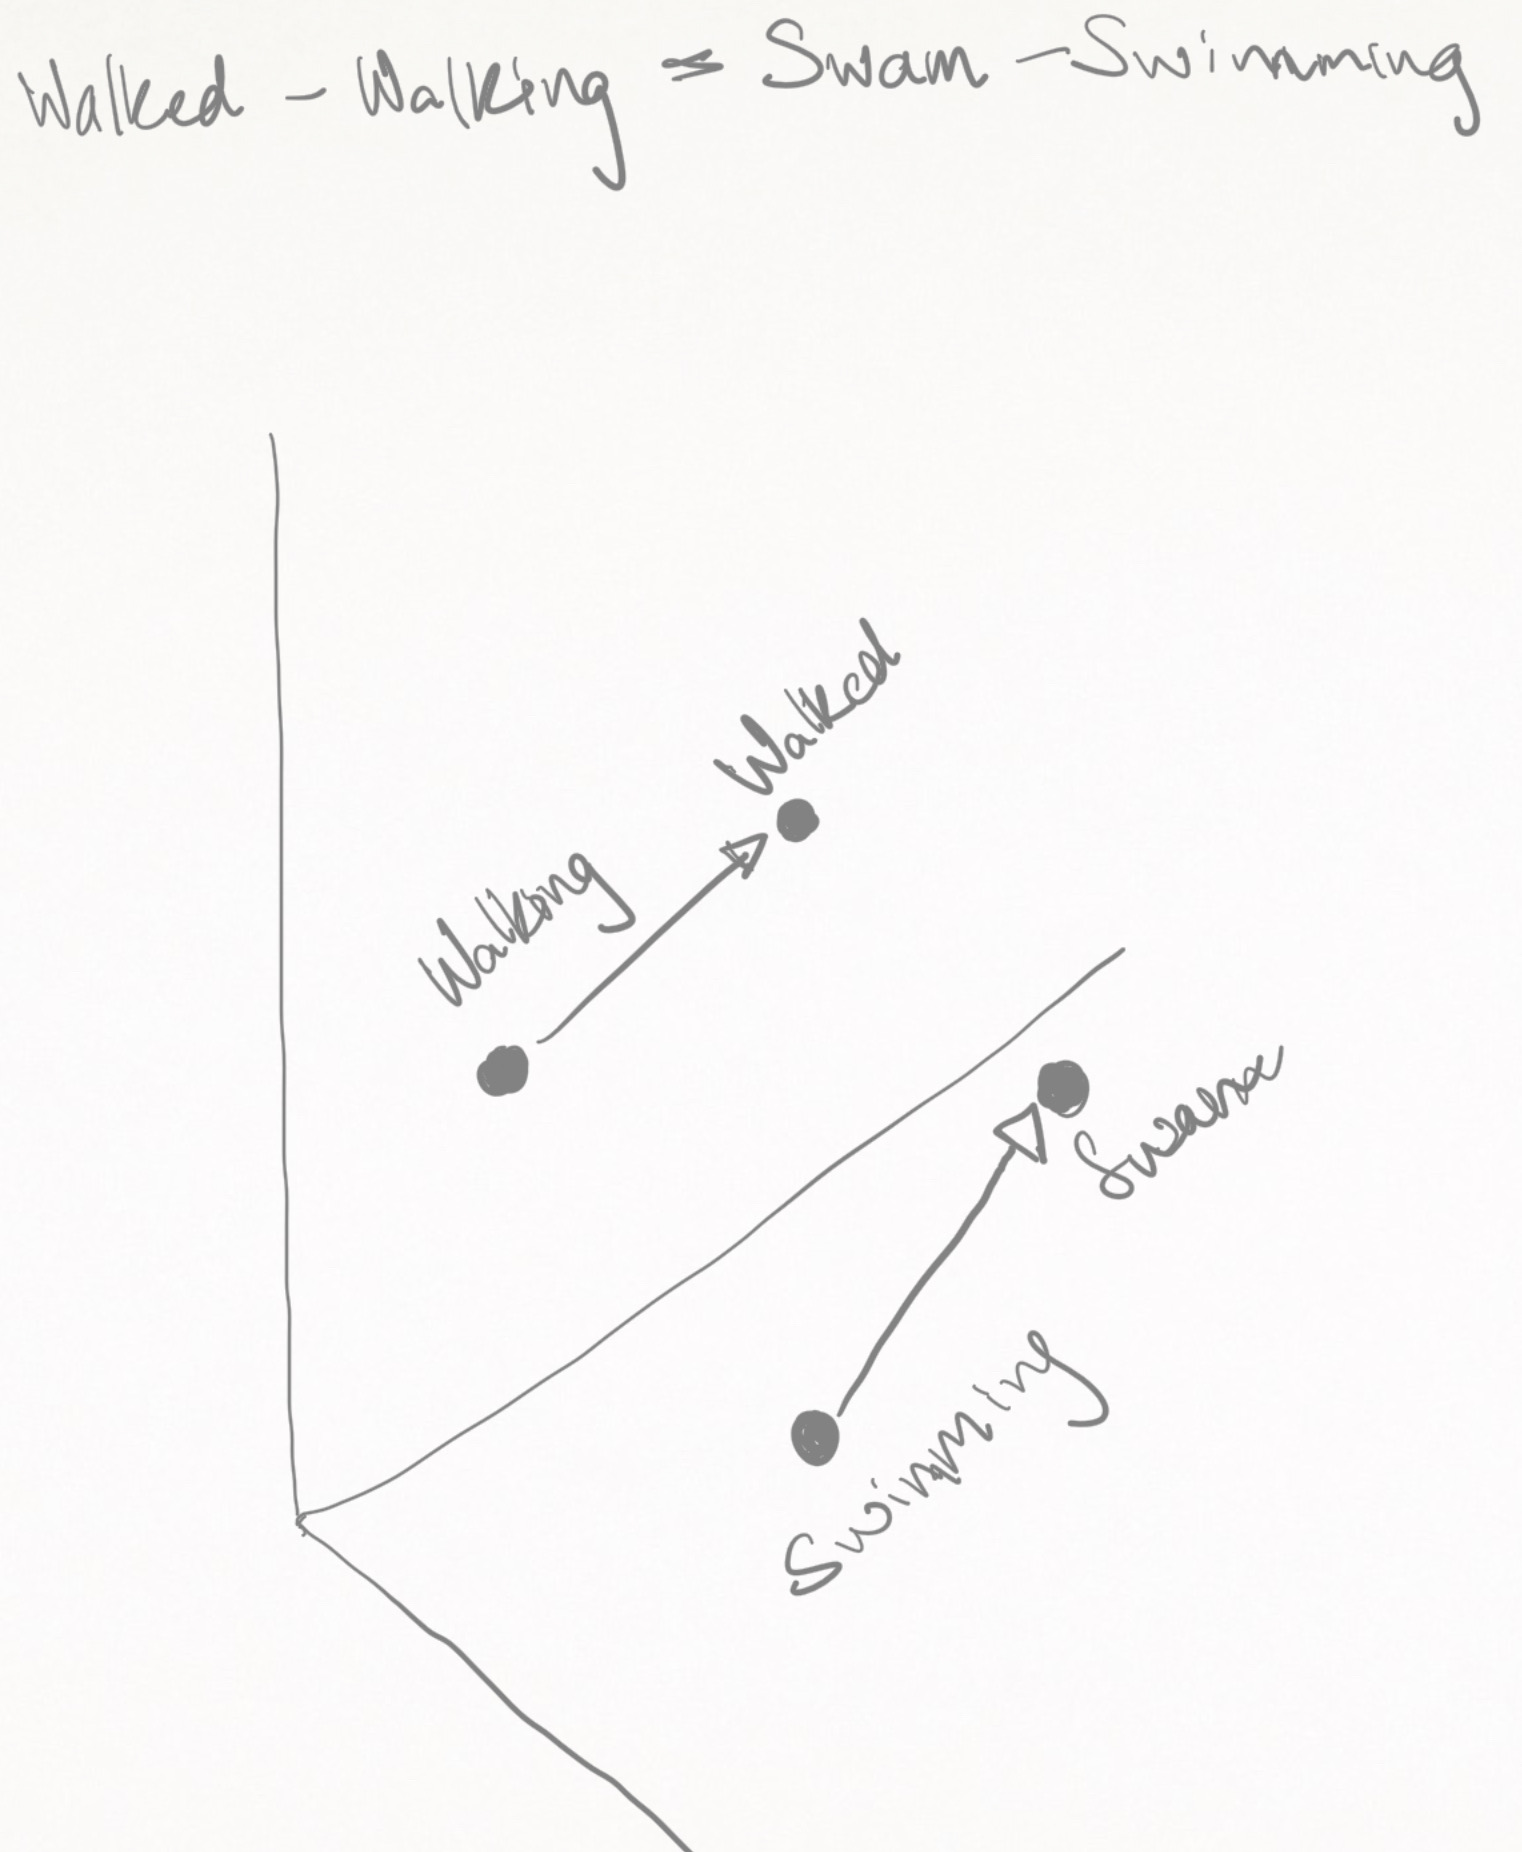 Walked - Walking = Swam - Swimming
Walked
Walking
Swam
Swimming